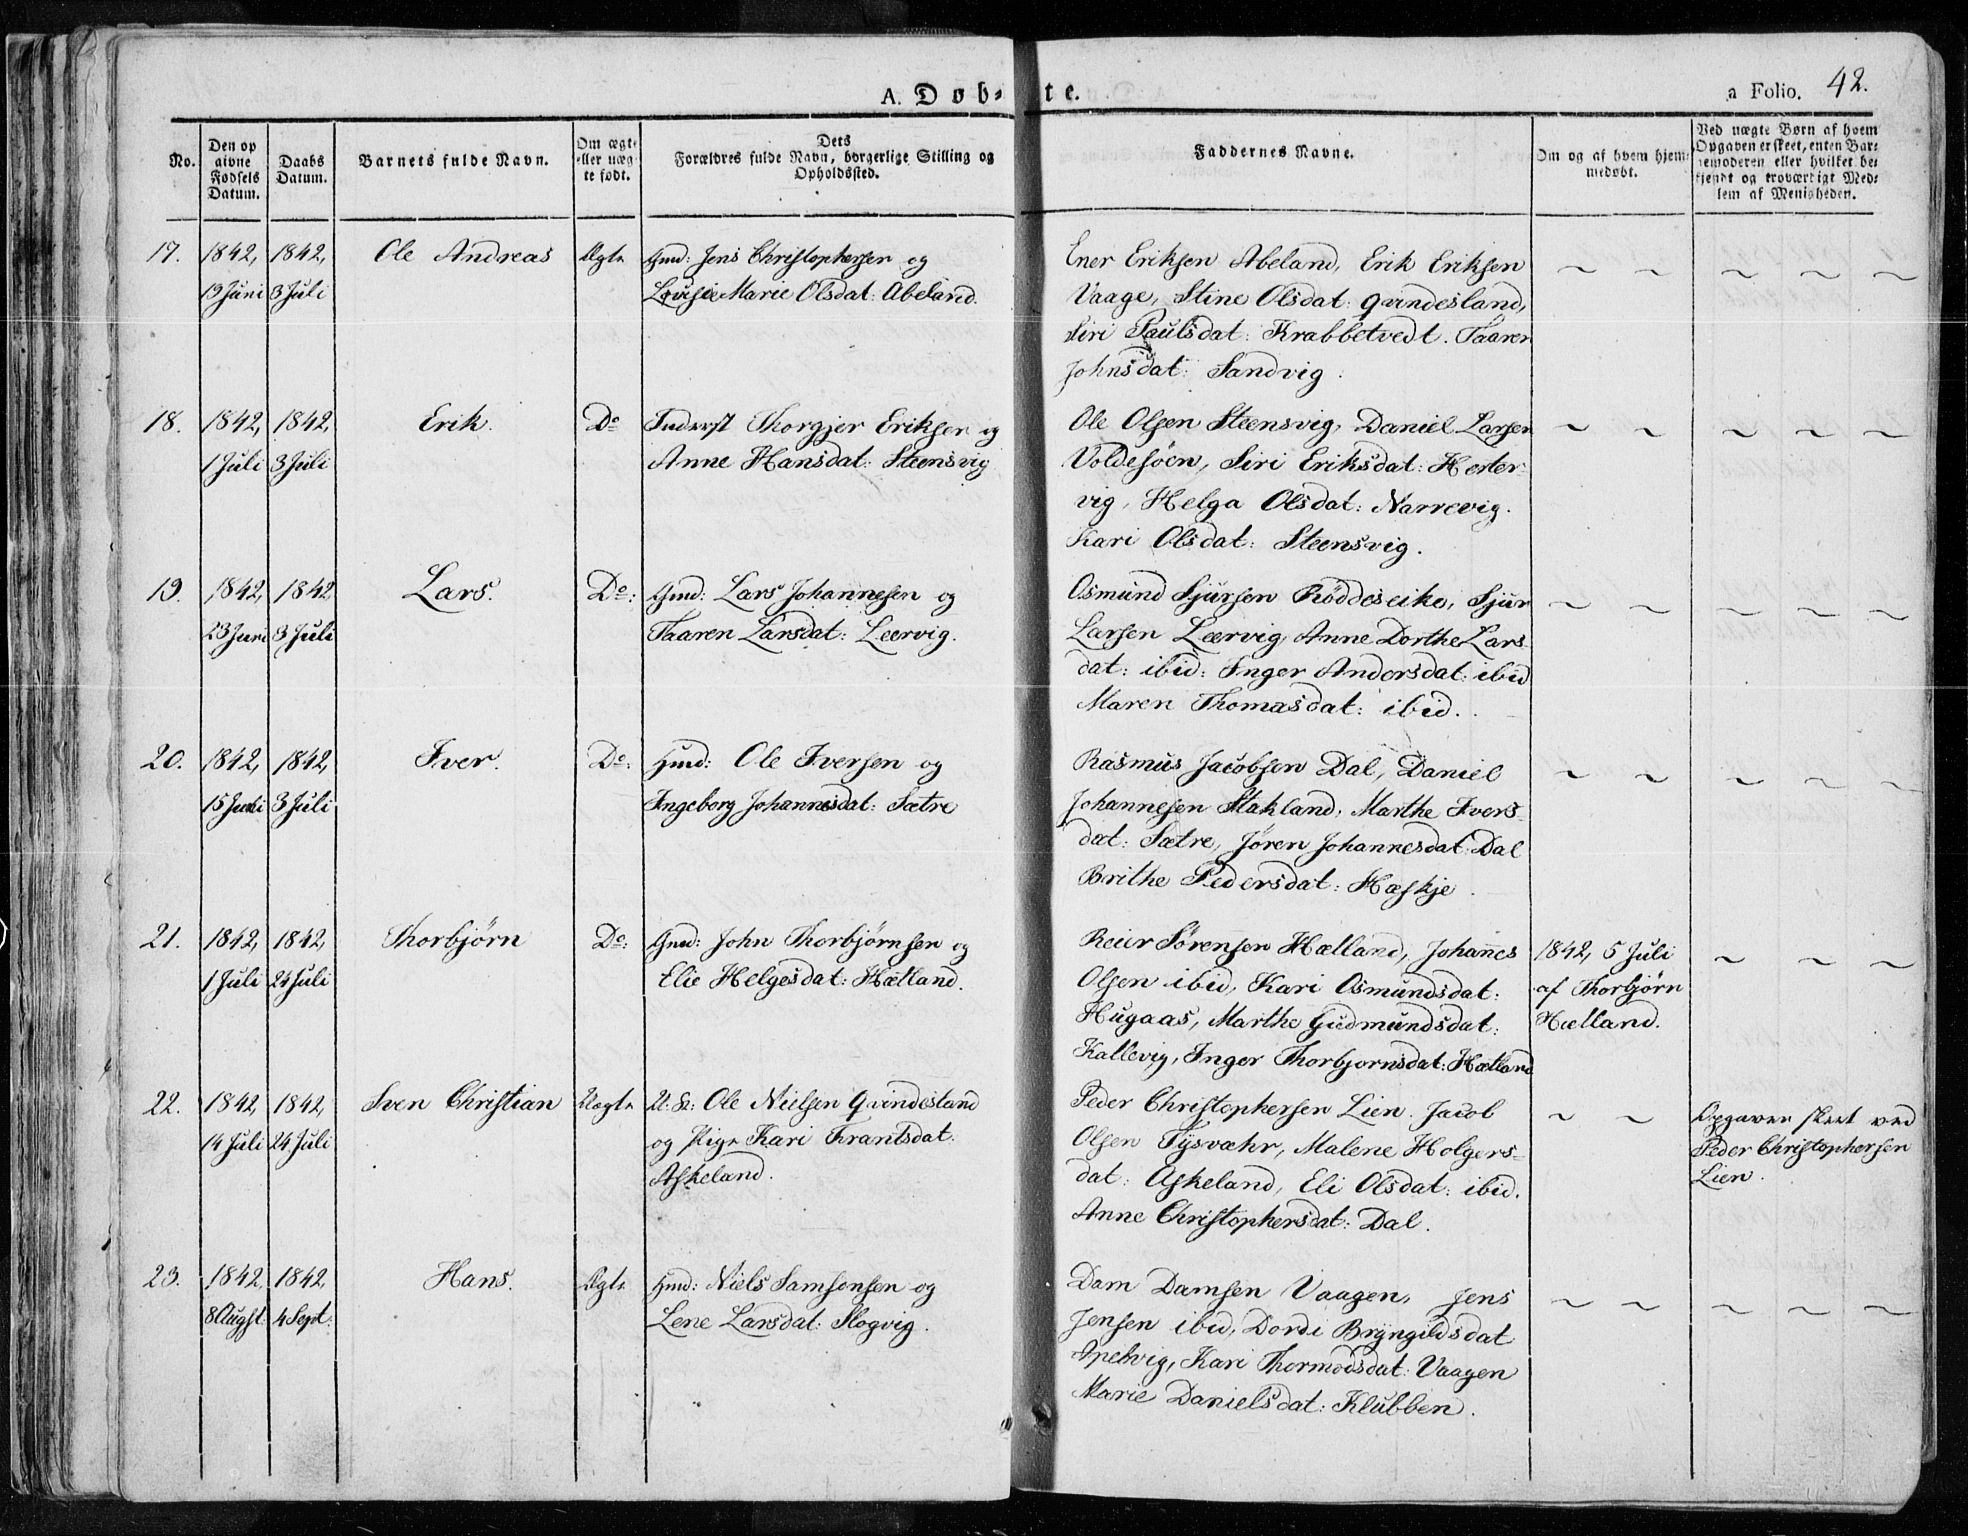 A. Døb- te. a Folio. 42.
No. | Den op givne Fødsels Datum. | Daabs Datum. | Barnets fulde Navn. | Om ægte eller uægte født. | Dets Forældres fulde Navn, borgerlige Stilling og Opholdssted. | Faddernes Navne. | Om og af hvem hjemmedøbt. | Ved uægte Børn af hvem Opgaven er skeet, enten Barnemoderen eller hvilket bekjendt og troværdigt Medlem af Menigheden.
17. 1842, 1842, Ole Andreas Ægte Gmd: Jens Christophersen og
19 Juni 3 Juli Lovise Marie Olsdat: Abeland.
Ener Eriksen Abeland, Erik Eriksen ~ ~ ~ ~ ~
Vaage, Stine Olsdat: Qvindesland,
Siri Paulsdat: Krabbetvedt. Taaren
Johnsdat: Sandvig.
18. 1842, 1842, Erik. Do Inderst Thorgjer Eriksen og
1 Juli 3 Juli Anne Hansdat: Steensvig
Ole Olsen Steensvig, Daniel Larsen ~ ~ ~ ~ ~
Voldesøen, Siri Eriksdat: Herter-
vig, Helga Olsdat: Narrevig.
Kari Olsdat: Steensvig.
19. 1842, 1842 Lars. Do: Gmd: Lars Johannesen og
23 Juni 3 Juli Taaren Larsdat: Leervig.
Osmund Sjursen Røddeseike, Sjur ~ ~ ~ ~ ~
Larsen Leervig, Anne Dorthe Lars-
dat: ibid: Inger Andersdat: ibid
Maren Thomasdat: ibid.
20. 1842, 1842, Iver. Do: Hmd: Ole Iversen og
15 Juni 3 Juli Ingeborg Johannesdat: Sætre
Rasmus Jacobsen Dal, Daniel ~ ~ ~ ~ ~
Johannesen Stakland, Marthe Ivers-
dat: Sætre, Jøren Johannesdat: Dal
Brithe Pedersdat: Hæskje.
21. 1842, 1842, Thorbjørn Do: Gmd: John Thorbjørnsen og
1 Juli 24 Juli Elie Helgesdat: Hætland.
Reier Sørensen Hælland, Johannes 1842, 5 Juli ~ ~ ~
Olsen ibid, Kari Osmundsdat: af Thorbjørn
Hugaas, Marthe Gudmundsdat: Hælland.
Kallevig, Inger Thorbjornsdat: Hætland
22. 1842, 1842, Sven Christian Uægte U: K: Ole Nielsen Qvindesland
14 Juli 24 Juli og Pige Kari Frantsdat:
Askeland.
Peder Christophersen Lien. Jacob ~ ~ Opgaven skeet ved
Olsen Tysvæhr, Malene Holgers- Peder Christophersen
dat: Askeland, Eli Olsdat: ibid. Lien.
Anne Christophersdat: Dal.
23. 1842, 1842, Hans. Ægte Hmd: Niels Samsonsen og
8 Augst: 4 Sept: Lene Larsdat: Slogvig.
Dam Damsen Vaagen, Jens ~ ~ ~ ~ ~
Jensen ibid, Dordi Bryngildsdat
Apelvig, Kari Thormodsdat: Vaagen
Marie Danielsdat: Klubben.